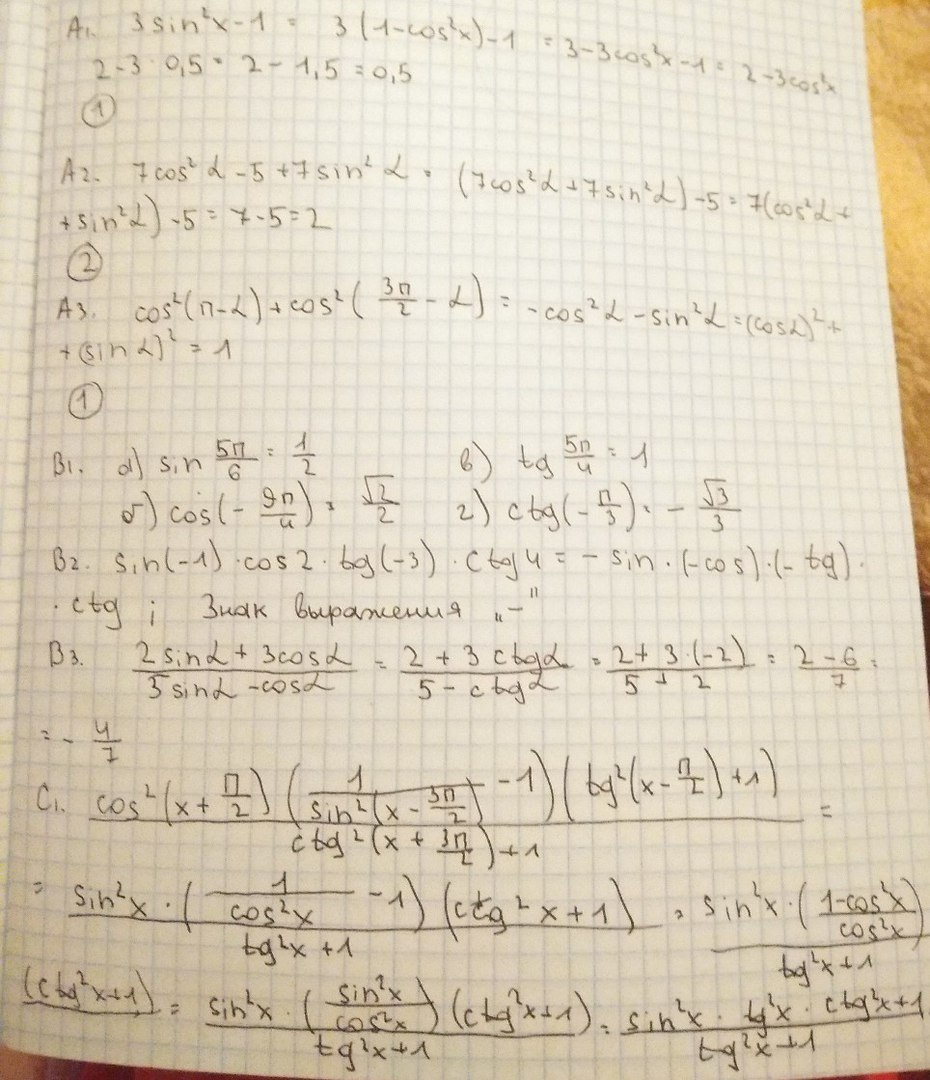 A1. 3sin²x-1 = 3(1-cos²x)-1 = 3-3cos²x-1 = 2-3cos²x
2-3·0,5 = 2-1,5 = 0,5
①
A2. 7cos²α-5+7sin²α = (7cos²α+7sin²α)-5 = 7(cos²α+
+sin²α)-5 = 7-5=2
②
A3. cos²(π-α)+cos²(3π/2-α) = -cos²α-sin²α = (cosα)²+
+(sinα)² = 1
①
B1. а) sin 5π/6 = 1/2 в) tg 5π/4 = 1
б) cos(-9π/4) = √2/2 г) ctg(-π/3) = -√3/3
B2. sin(-1)·cos2·tg(-3)·ctg4 = -sin·(-cos)·(-tg)·
·ctg ; Знак выражения „-"
B3. (2sinα+3cosα)/(5sinα-cosα) = (2+3ctgα)/(5-ctgα) = (2+3·(-2))/(5+2) = (2-6)/7 =
= -4/7
C1. (cos²(x+π/2)(1/(sin²(x-3π/2))-1)(tg²(x-π/2)+1))/(ctg²(x+3π/2)+1) =
= (sin²x·(1/cos²x-1)(ctg²x+1))/(tg²x+1) = (sin²x·((1-cos²x)/cos²x))/(tg²x+1)
(ctg²x+1) = (sin²x·(sin²x/cos²x)(ctg²x+1))/(tg²x+1) = (sin²x·tg²x·ctg²x+1)/(tg²x+1)